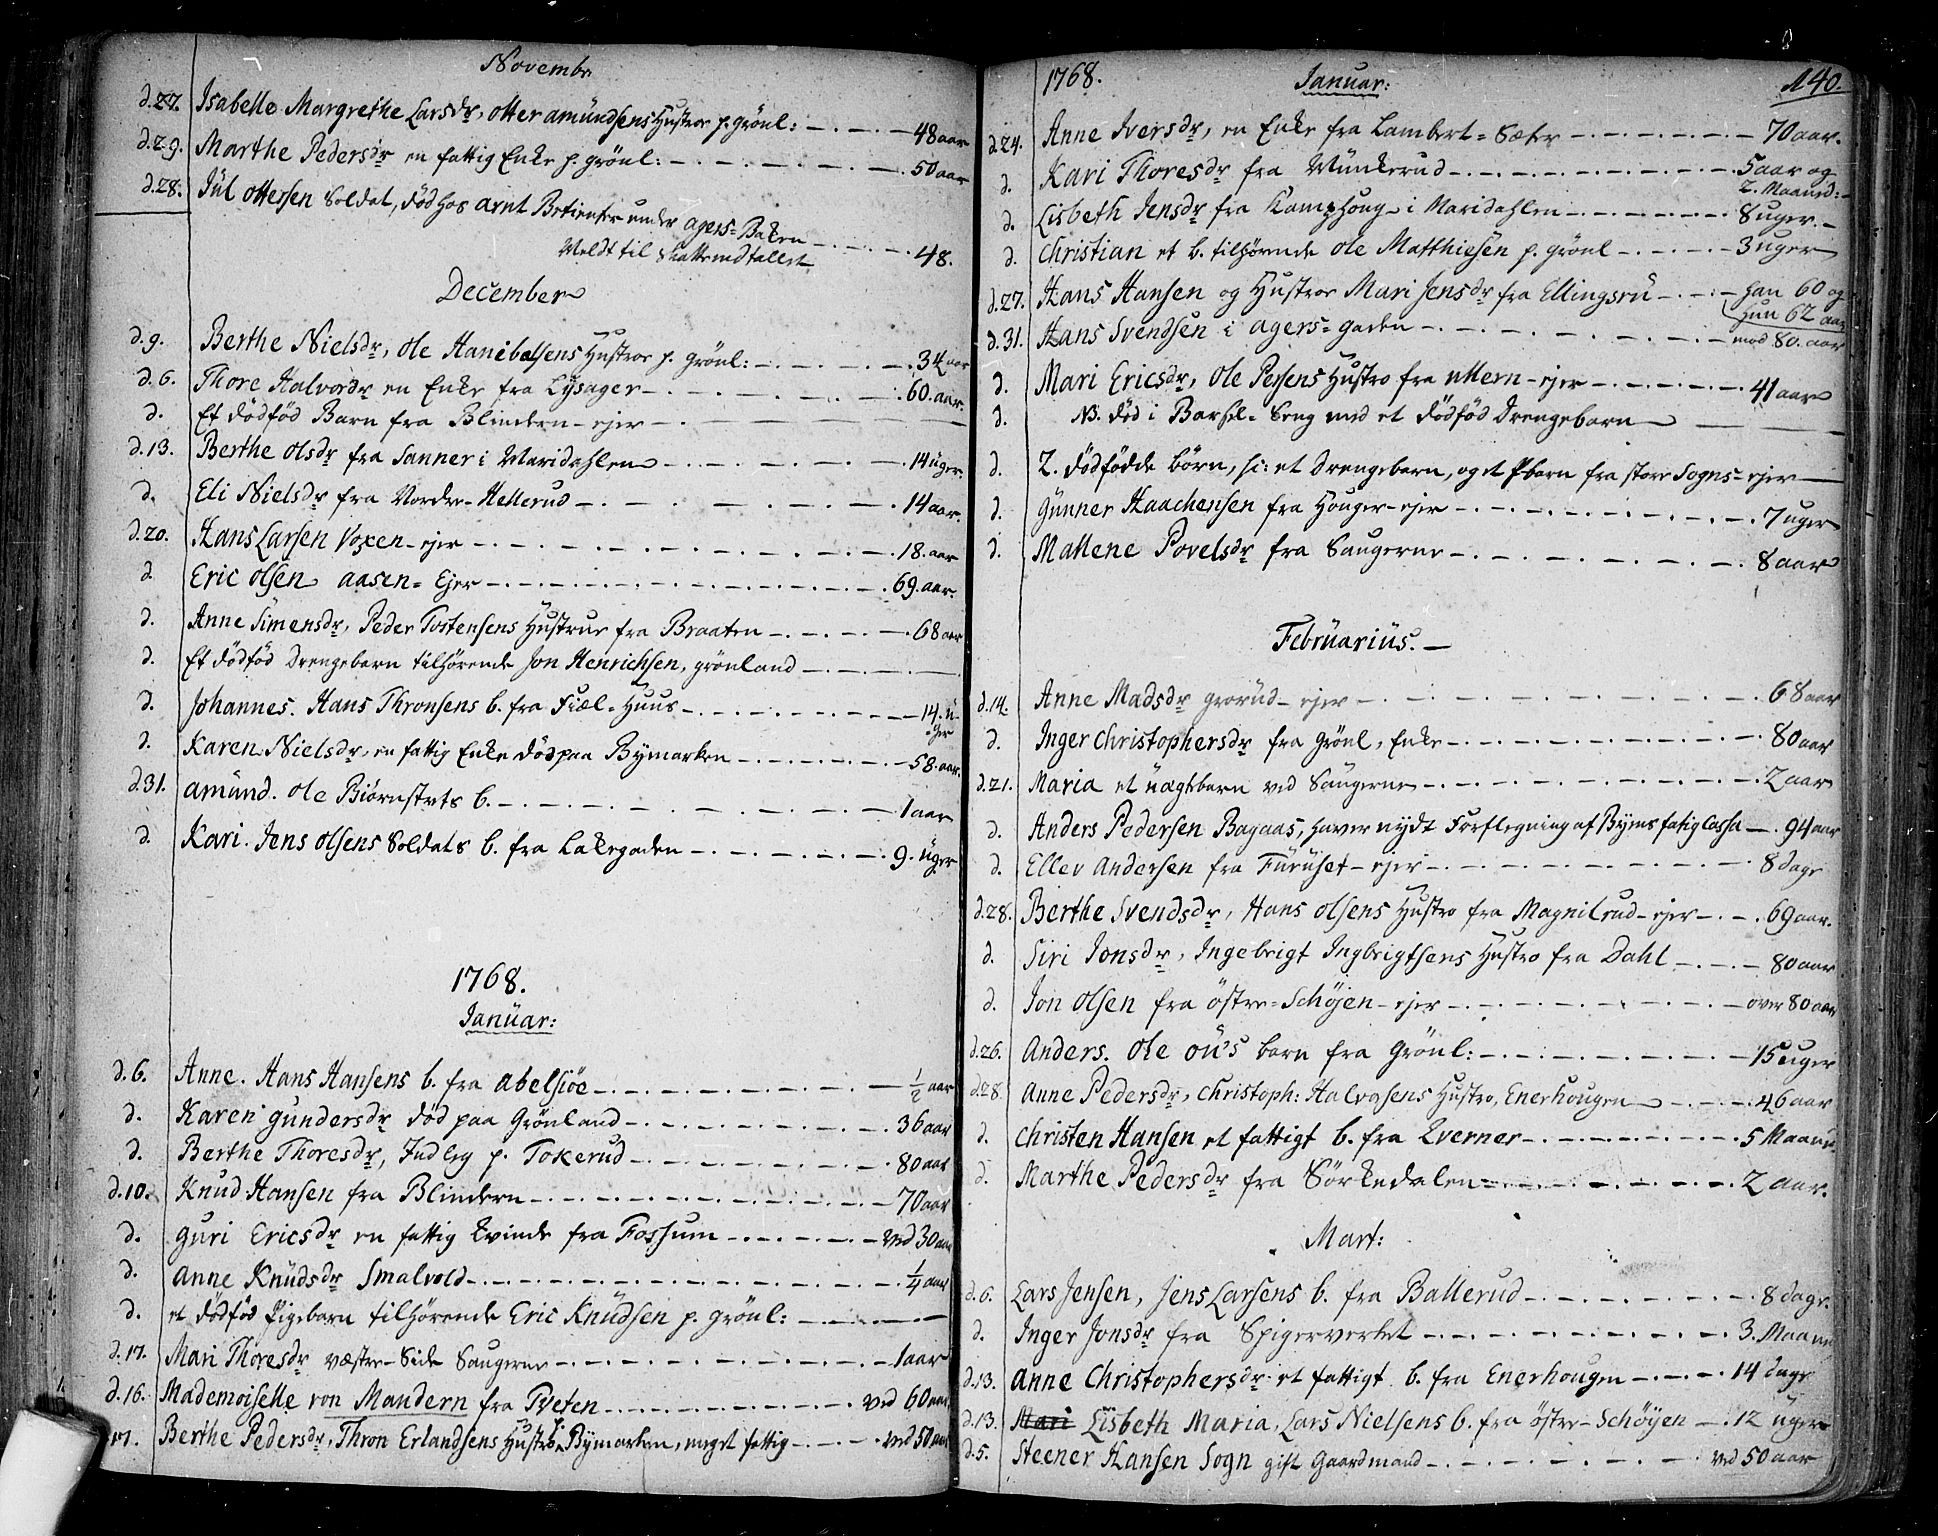 Novembr
d.27. Isabelle Margrethe Larsdr, Otter Amündsens Hustroe p. Grönl: 48 aar
d.29. Marthe Pedersdr en fattig Enke p. Grönl: 50 aar
d.28. Jül Ottersen Soldat, død hos Arnt Betienter under Agers-Baken
Meldt til Skatte 48.
December
d.9. Berthe Nielsdr, Ole Hanibalsens Hustroe p. Grönl: 34 aar
d.6. Thore Halvorsdr en Enke fra Lysager 60. aar.
d. Et dödföd Barn fra Blindern-ejer
d.13. Berthe Olsdr fra Sanner i Maridahlen 14 uger.
d. Eli Nielsdr fra Nordre-Hellerud 14 aar.
d.20. Hans Larsen Voxen-ejer 18. aar
d. Eric Olsen Aasen=Ejer 69. aar.
d. Anne Simensdr, Peder Tostensens Hustrue fra Braaten 68 aar
d. Et dödföd Drengebarn tilhörende Jon Henrichsen, Grönland
d. Johannes. Hans Thronsens b. fra Fiæl-Huus 14. ü-
ger
d. Karen Nielsdr, en fattig Enke död paa Bymarken 58. aar.
d.31. Amünd. Ole Biörnstets b. 1 aar
d. Kari. Jens Olsens Soldats b. fra Lakegaden 9. üger
1768.
Janüar:
d.6. Anne. Hans Hansens b. fra Abelsiöe 1/2 aar
d. Karen Gundersdr död paa Grönland 36 aar
d. Berthe Thoresdr, Indleg p. Tokerud 80 aar
d.10. Knud Hansen fra Blindern 70 aar
d. Guri Ericsdr en fattig Kvinde fra Fossum ved 30 aar
d. Anne Knüdsdr Smalvold 1/4 aar
d. et dödföd Pigebarn tilhörende Eric Knüdsen p. Grönl:
d.17. Mari Thoresdr væstre-Side Saugerne 1 aar
d.16. Mademoiselle von Mandern fra Tveten ved 60 aar
17. Berthe Pedersdr, Thron Erlandsens Hustroe p. Bymarken, meget fattig ved 50 aar
1768. Januar: 140.
d.24. Anne Iversdr, en Enke fra Lambert=Sæter 70 aar.
d. Kari Thoresdr fra Münkerud 5 aar og
2. Maaned:
d. Lisbeth Jensdr fra Kamphoug i Maridahlen 8 uger.
d. Christian et b. tilhörende Ole Matthiesen p. Grönl 3 uger
d.27. Hans Hansen og Hustroe Mari Jensdr fra Ellingsrü han 60 og
hun 62 aar
d.31. Hans Svendsen i Agers=gaden mod 80. aar
d. Mari Ericsdr, Ole Persens Hustro fra uttern-ejer 41 aar
d. NB. död i Barsel=Seng med et dödföd Drengebarn
d. 2. dödfödde börn, sc: et Drengebarn, og et Pbarn fra store Sogns-ejer
d. Günner Haachensen fra Houger-ejer 7 uger
d. Mallene Povelsdr fra Saugerne 8 aar
Febrüariüs.
d.14. Anne Madsdr Grorüd-ejer 68 aar
d. Inger Christophersdr fra Grönl, Enke 80 aar
d.21. Maria et üægtebarn ved Saugerne 2 aar
d. Anders Pedersen Bagaas, haver nydt Forflegning af Byens fatig Cassa 94 aar
d. Ellev Andersen fra Fürüset-ejer 8 dage
d.28. Berthe Svendsdr, Hans Olsens Hustro fra Magnilrud-ejer 69 aar.
d. Siri Jonsdr, Ingebrigt Ingbrigtsens Hustro fra Dahl 80 aar
d. Jon Olsen fra östre=Schöjen-ejer over 80 aar
d.26. Anders. Ole Oü's barn fra Grönl: 15 uger
d.28. Anne Pedersdr, Christoph: Halvorsens Hustro, Enerhougen 46 aar
d. Christen Hansen et fattigt b. fra Kverner 5 Maan
d. Marthe Pedersdr fra Sörkedalen 2 aar.
Mart:
d.6. Lars Jensen, Jens Larsens b. fra Ballerud 8 dage.
d. Inger Jonsdr fra Spigerverket 3. Maan
d.13. Anne Christophersdr et fattigt b. fra Enerhougen 14 dage
d.13. Mari Lisbeth Maria. Lars Nielsens b. fra östre-Schöyen 12 uger
d.5. Steener Hansen Sogn gift Gaardmand ved 50 aar